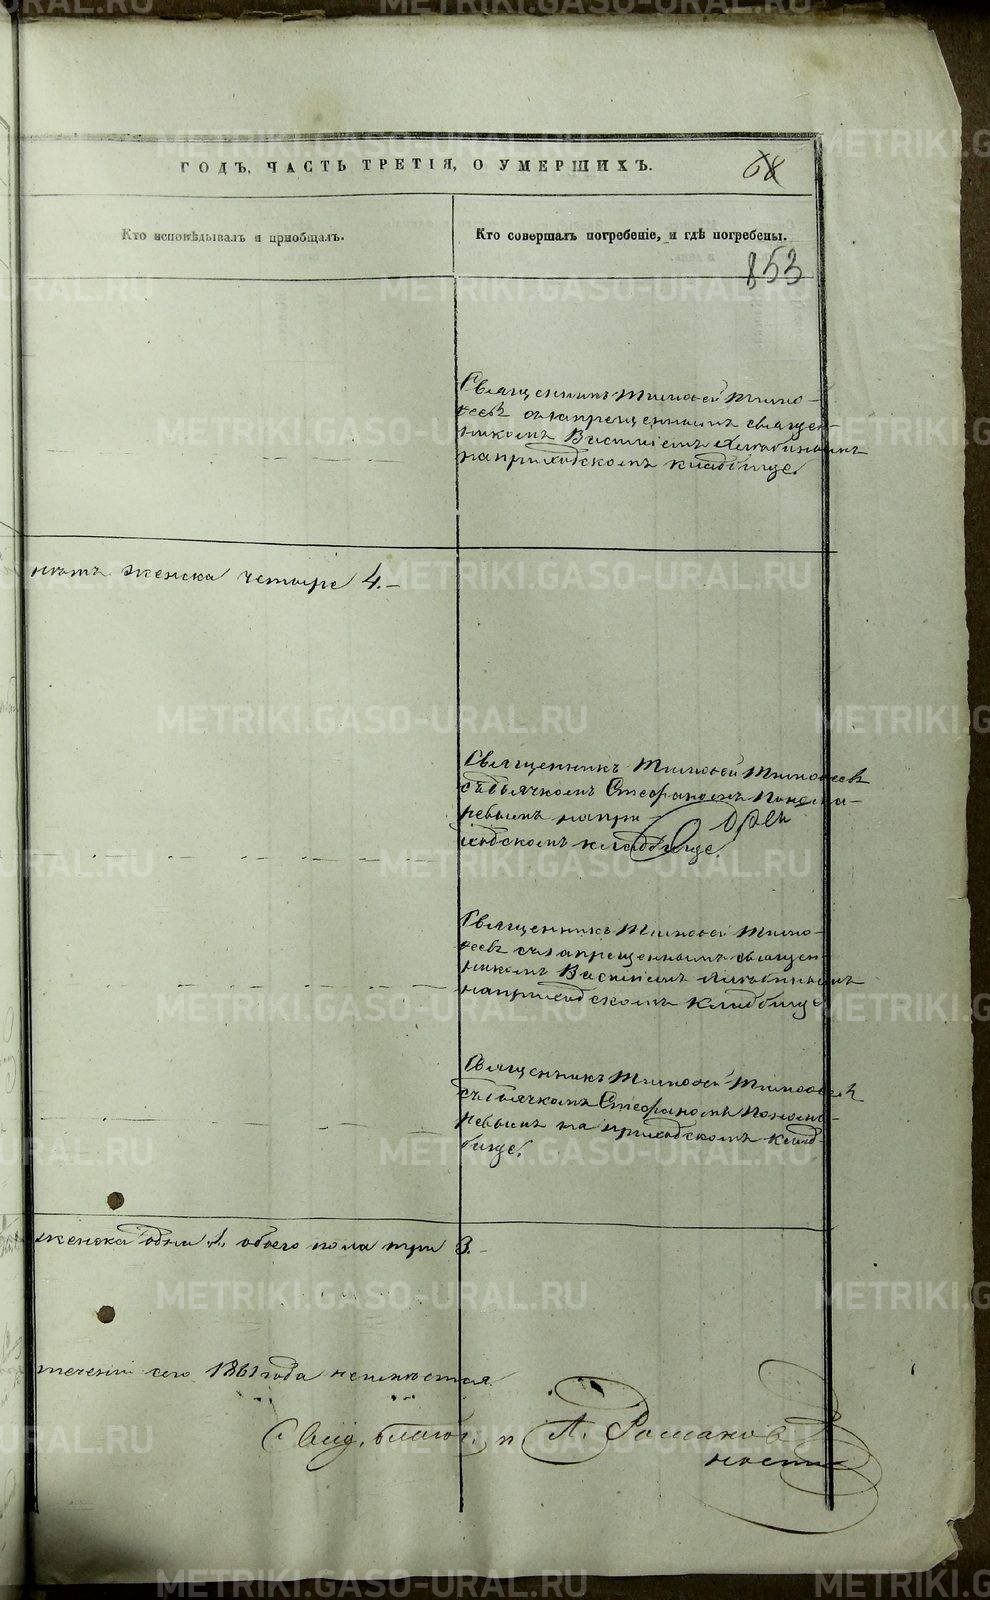 ГОДЪ, ЧАСТЬ ТРЕТІЯ, О УМЕРШИХЪ.
68
Кто исповѣдывалъ и пріобщалъ.
Кто совершалъ погребеніе, и гдѣ погребены.
853
Священникъ Тимоѳей Тимо-
ѳеевъ съ запрещеннымъ священ-
никомъ Василіемъ
на приходскомъ кладбище.
нѣтъ женска четыре 4.–
Священникъ Тимоѳей Тимоѳеевъ
съ дьячкомъ Стефаномъ Понома-
ревымъ на при-
ходскомъ кладбище.
Священникъ Тимоѳей Тимо-
ѳеевъ съ запрещеннымъ священ-
никомъ Василіемъ
на приходскомъ кладбище
Священникъ Тимоѳей Тимоѳеевъ
съ дьячкомъ Стефаномъ Понома-
ревымъ на приходскомъ клад-
бище.
женска одна 1, обоего пола три 3.–
теченіи сего 1861 года неимѣется
Свид. благоч. А. Романов
METRIKI.GASO-URAL.RU